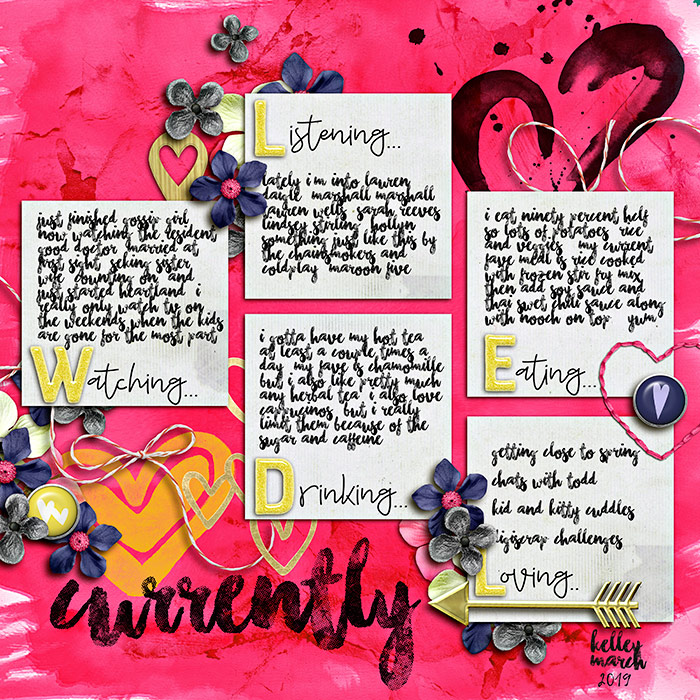 Listening...
lately i'm into lauren
daigle marshall marshall
lauren wells sarah reeves
lindsey stirling hollyn
something just like this by
the chainsmokers and
coldplay maroon five
just finished gossip girl
now watching the resident
good doctor married at
first sight seking sister
wife counting on and
just started heartland i
really only watch tv on
the weekends when the kids
are gone for the most part
Watching...
i eat ninety percent hclf
so lots of potatoes rice
and veggies my current
fave meal is rice cooked
with frozen stir fry mix
then add soy sauce and
thai swet chili sauce along
with nooch on top yum
Eating...
i gotta have my hot tea
at least a couple times a
day my fave is chamomille
but i also like pretty much
any herbal tea i also love
cappucinos but i really
limit them because of the
sugar and caffeine
Drinking...
getting close to spring
chats with todd
kid and kitty cuddles
digiscrap challenges
Loving..
currently
kelley
march
2019